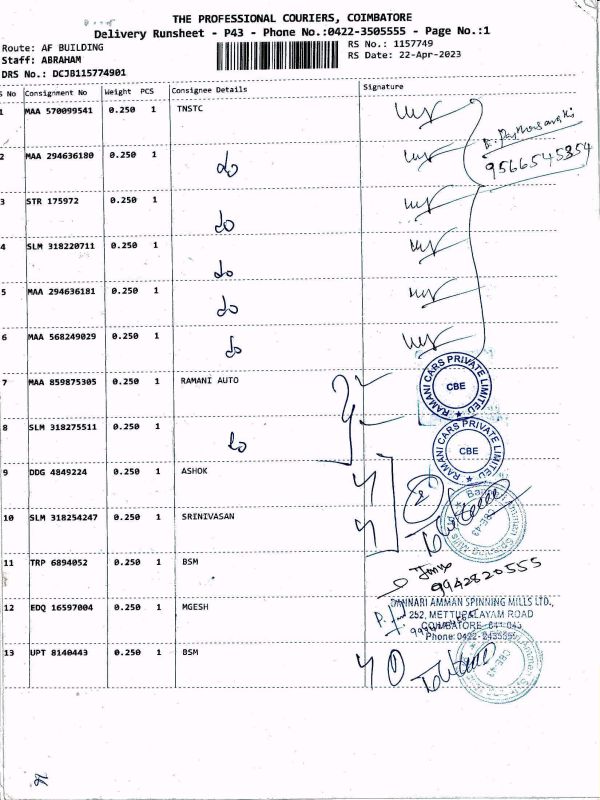 THE PROFESSIONAL COURIERS, COIMBATORE
Delivery Runsheet - P43 - Phone No.:0422-3505555 - Page No.:1
Route: AF BUILDING
RS No.: 1157749
Staff: ABRAHAM
RS Date: 22-Apr-2023
DRS No.: DCJB115774901
S No Consignment No Weight PCS Consignee Details Signature
1 MAA 570099541 0.250 1 TNSTC
2 MAA 294636180 0.250 1 do
9566545354
3 STR 175972 0.250 1 do
4 SLM 318220711 0.250 1 do
5 MAA 294636181 0.250 1 do
6 MAA 568249029 0.250 1 do
7 MAA 859875305 0.250 1 RAMANI AUTO
RAMANI CARS PRIVATE LIMITED
CBE
8 SLM 318275511 0.250 1 do
RAMANI CARS PRIVATE LIMITED
CBE
9 DDG 4849224 0.250 1 ASHOK
10 SLM 318254247 0.250 1 SRINIVASAN
CBE-43
11 TRP 6894052 0.250 1 BSM
9942820555
12 EDQ 16597004 0.250 1 MGESH
BANNARI AMMAN SPINNING MILLS LTD.,
252, METTUPALAYAM ROAD
COIMBATORE - 641 043
Phone: 0422-2435555
13 UPT 8140443 0.250 1 BSM
CBE-43